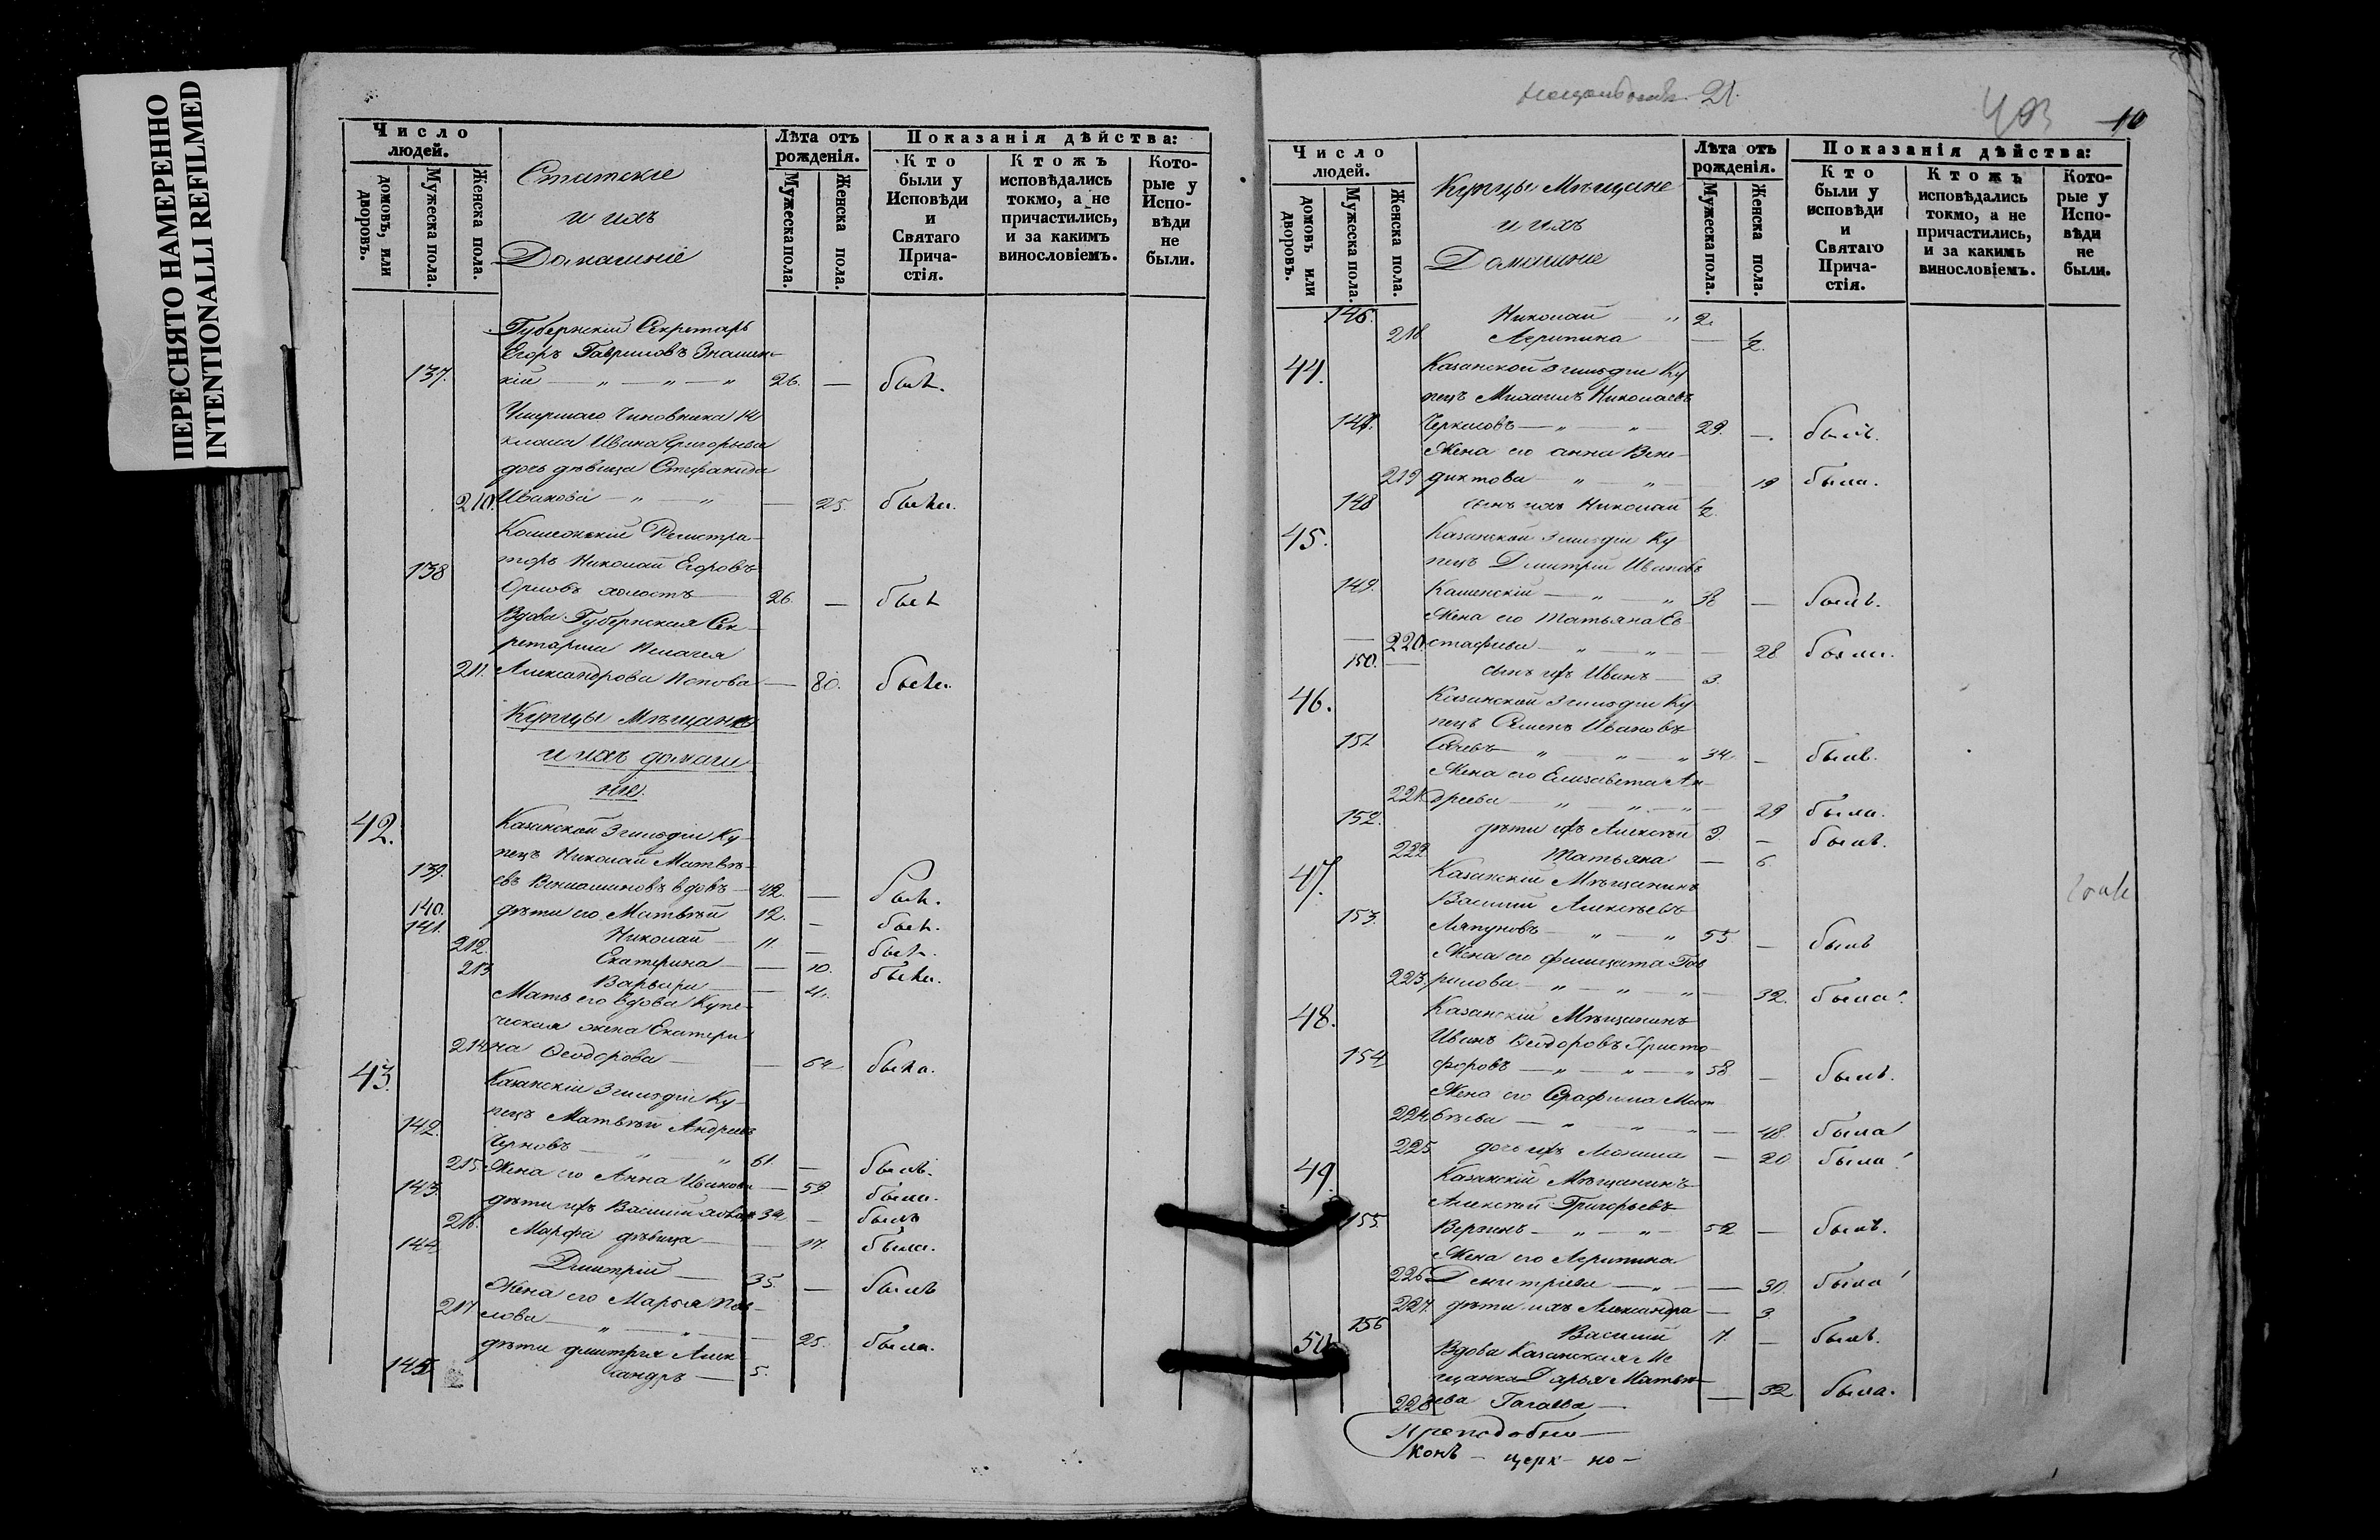 ПЕРЕСНЯТО НАМЕРЕННО
INTENTIONALLI REFILMED
Число людей.
домовъ, или дворовъ.
Мужеска пола.
Женска пола.
Статскіе
и ихъ
Домашніе
Лѣта отъ рожденія.
Мужеска пола.
Женска пола.
Показанія дѣйства:
Кто были у Исповѣди и Святаго Прича-стія.
Ктожъ исповѣдались токмо, а не причастились, и за какимъ винословіемъ.
Кото-рые у Испо-вѣди не были.
Губернскій Секретарь
Егоръ Гавриловъ Знамен-
137. скій — „ — „ — „ 26. — былъ.
Умершаго Чиновника 14
класса Ивана Григорьева
дочь дѣвица Стефанида
210. Иванова — „ — „ — 25. была.
Колежскій Регистра-
138 торъ Николай Егоровъ
Орловъ холостъ — 26. — былъ
Вдова Губернская Сек-
ретарша Пелагея
211. Александрова Попова — 80. была.
Купцы Мѣщане
и ихъ домаш
ніе.
42. Казанской 3 гильдіи Ку-
139. пецъ Николай Матвѣ-
евъ Веніаминовъ вдовъ 42. — былъ.
140. дѣти его Матвѣй 12. — былъ.
141. Николай — 11. — былъ.
212. Екатерина — — 10. была.
213 Варвара — 4.
Мать его вдова Купе-
ческая жена Екатери
214 на Ѳеодорова — — 64 была.
43. Казанскій 3 гильдіи Ку-
142. пецъ Матвѣй Андреевъ
Черновъ — „ — „ 61. — былъ.
215. Жена его Анна Иванова — 59 была.
143. дѣти ихъ Василій холост 34 — былъ
216. Марфа дѣвица — 17. была.
144 Дмитрій — 35. — былъ
Жена его Марья Пав-
217 лова — „ — „ — 25. была.
дѣти Дмитрія Алек
145. сандръ — 5.
21.
403
10
Число людей.
домовъ или дворовъ.
Мужеска пола.
Женска пола.
Купцы Мѣщане
и ихъ
Домашніе
Лѣта отъ рожденія.
Мужеска пола.
Женска пола.
Показанія дѣйства:
Кто были у исповѣди и Святаго Прича-стія.
Ктожъ исповѣдались токмо, а не причастились, и за какимъ винословіемъ.
Кото-рые у Испо-вѣди не были.
146. Николай — „ 2.
218 Агрипина — ½.
44. Казанской 3 гильдіи Ку
пецъ Михаилъ Николаевъ
147. Черкасовъ — „ — „ — 29. — былъ.
Жена его Анна Вене-
219 диктова — „ — „ — 19 была.
148 сынъ ихъ Николай ½.
45. Казанской 3 гильдіи Ку-
пецъ Дмитрій Ивановъ
149. Каменскій — „ — „ 38 — былъ.
Жена его Татьяна Ев
220 стафиева — „ — „ — 28 была.
150. сынъ ихъ Иванъ — 3.
46. Казанской 3 гильдіи Ку
пецъ Семенъ Ивановъ
151 „ — „ — „ 34 — былъ.
Жена его Елизавета Ан-
221 дреева — „ — „ — „ — 29 была.
152. дѣти ихъ Алексѣй 9. — былъ.
222 Татьяна — 6.
47. Казанскій Мѣщанинъ
Василій Алексѣевъ
153. Ляпуновъ — „ — „ 55 — былъ
Жена его Фелицата Гав
223. рилова — „ — „ — „ — 32. была.
48. Казанскій Мѣщанинъ
Иванъ Ѳеодоровъ Христо-
154 форовъ — „ — „ — „ 58 — былъ.
Жена его Серафима Мат
224 вѣева — „ — „ — „ — 48. была
225 дочь ихъ — 20 была
49. Казанскій Мѣщанинъ
Алексѣй Григорьевъ
155 Вергинъ — „ — „ — 52 — былъ.
Жена его Агрипина
226 Демитріева — „ — — 30. была
227. дѣти ихъ Александра — 3.
156 Василій 7. — былъ.
50 Вдова Казанская Мѣ
щанка Дарья Матвѣ-
228 ева Гагаева — — 32 была.